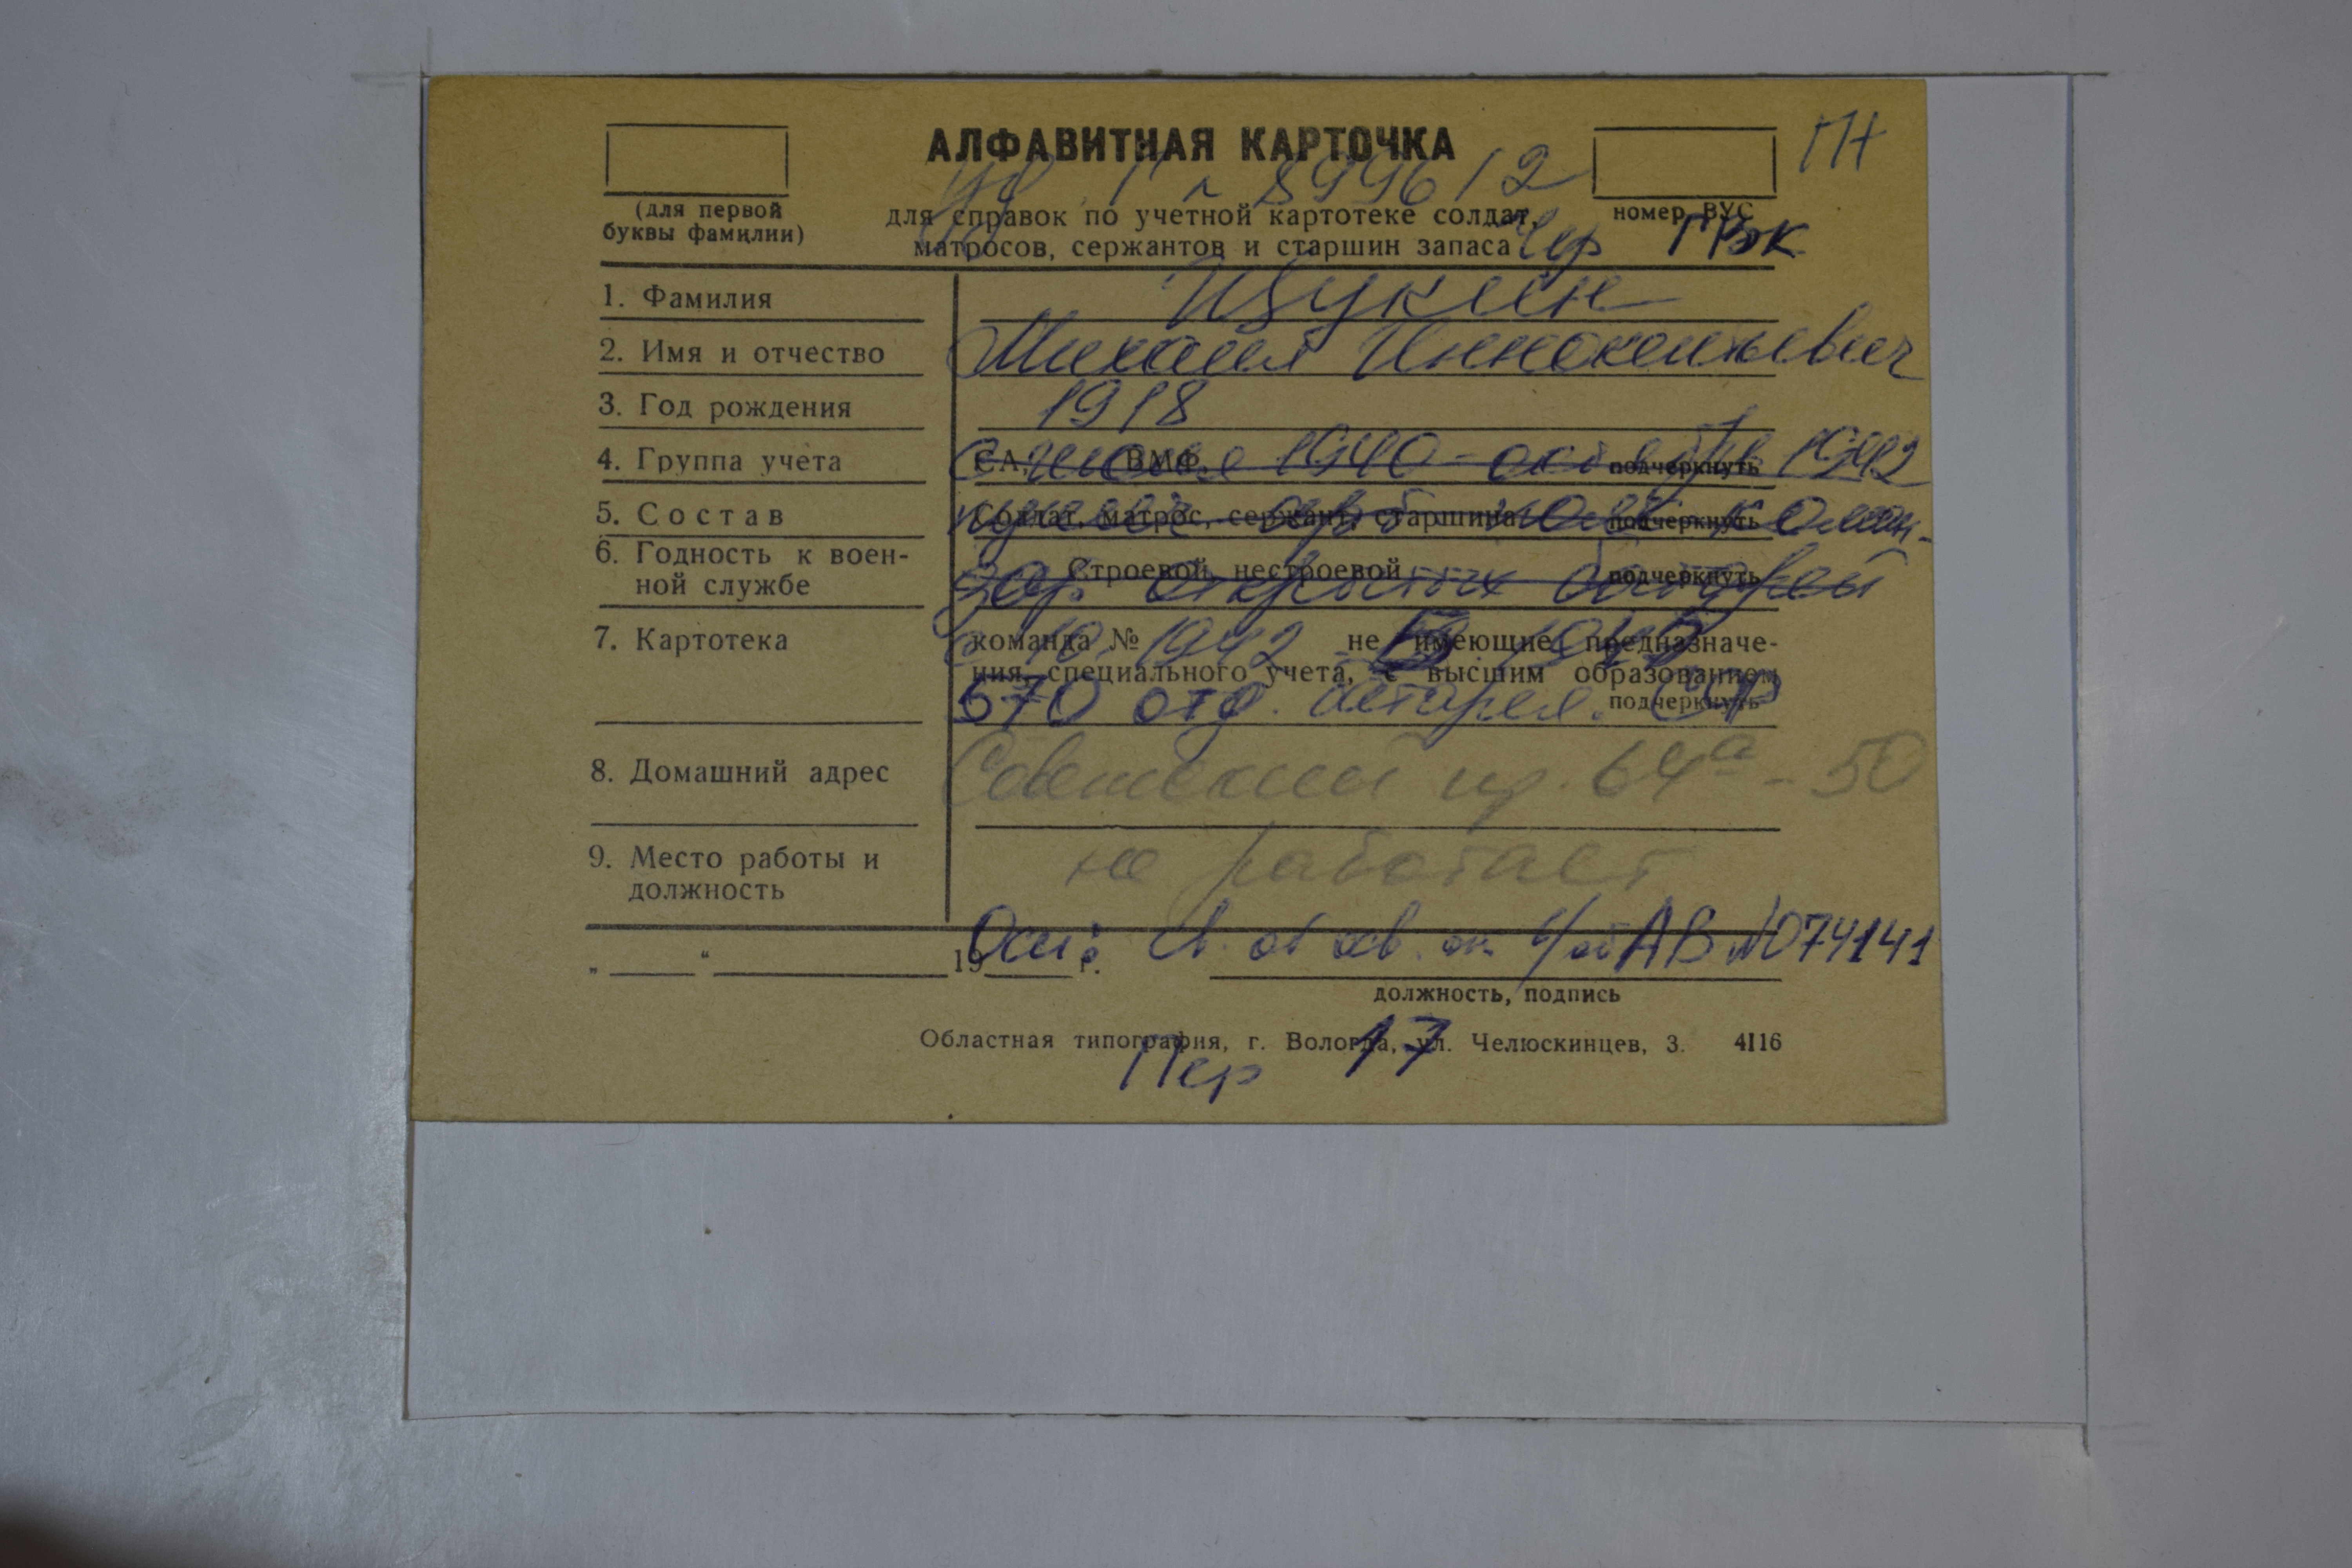 АЛФАВИТНАЯ КАРТОЧКА
ПН
899612
(для первой
буквы фамилии)
для справок по учетной картотеке солдат,
матросов, сержантов и старшин запаса
номер ВУС
Чер ГВК
1. Фамилия Щукин
2. Имя и отчество Михаил Иннокентьевич
3. Год рождения 1918
4. Группа учета СА, ВМФ подчеркнуть
1940 - октябрь 1942
5. Состав Солдат, матрос, сержант, старшина подчеркнуть
6. Годность к воен-
ной службе Строевой, нестроевой подчеркнуть
открытых батарей
7. Картотека команда № не имеющие предназначе-
ния, специального учета, с высшим образованием
подчеркнуть
10. 1942
670 отд. батарея. СФ
8. Домашний адрес Советский пр. 64а - 50
9. Место работы и
должность не работает
Осн: св. об осв. от в/об АВ N074141
„ “ 19 г.
должность, подпись
Областная типография, г. Вологда, ул. Челюскинцев, 3. 4116
Пер 17